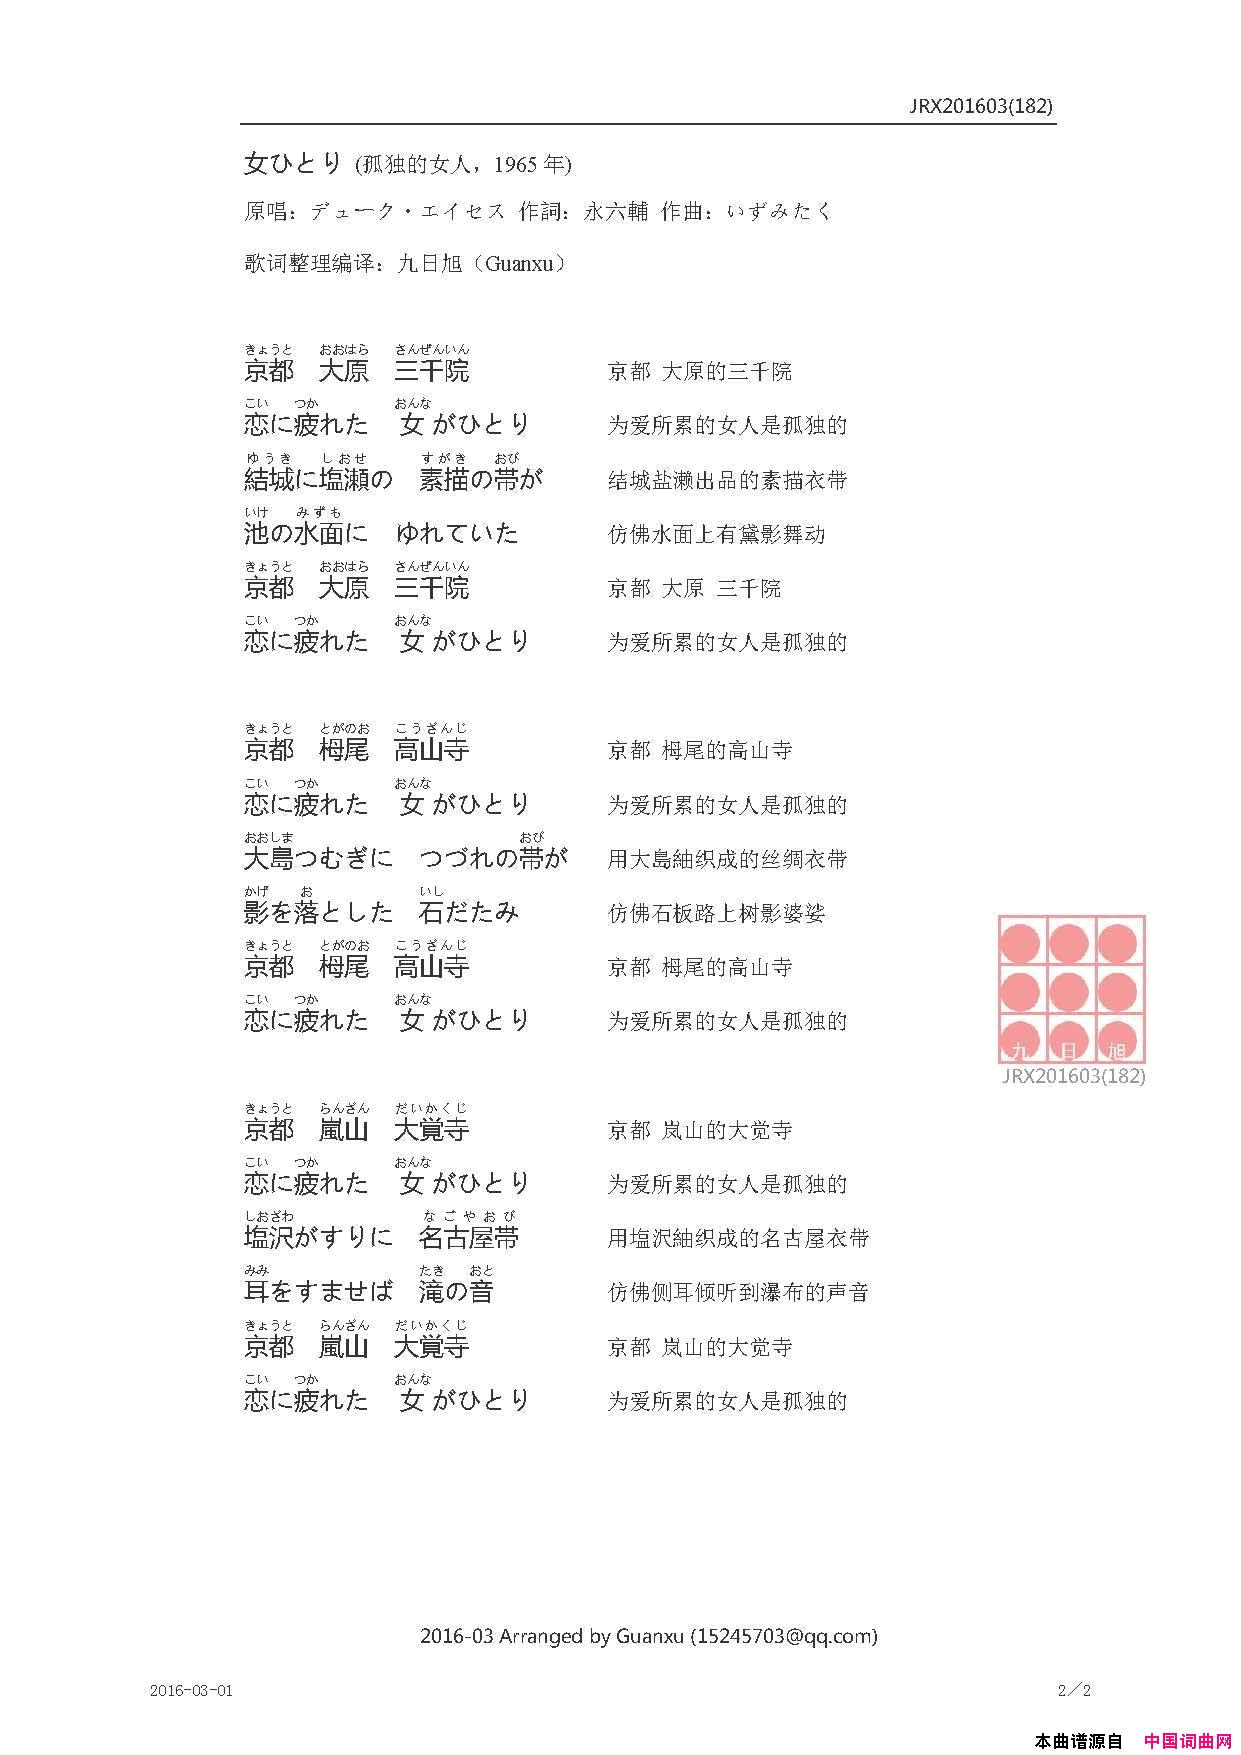 JRX201603(182)
女ひとり (孤独的女人，1965年)
原唱：デューク・エイセス 作詞：永六輔 作曲：いずみたく
歌词整理编译：九日旭（Guanxu）
きょうと おおはら さんぜんいん
京都 大原 三千院 京都 大原的三千院
こい つか おんな
恋に疲れた 女がひとり 为爱所累的女人是孤独的
ゆうき しおせ すがき おび
結城に塩瀬の 素描の帯が 结城盐濑出品的素描衣带
いけ みずも
池の水面に ゆれていた 仿佛水面上有黛影舞动
きょうと おおはら さんぜんいん
京都 大原 三千院 京都 大原 三千院
こい つか おんな
恋に疲れた 女がひとり 为爱所累的女人是孤独的
きょうと とがのお こうざんじ
京都 栂尾 高山寺 京都 栂尾的高山寺
こい つか おんな
恋に疲れた 女がひとり 为爱所累的女人是孤独的
おおしま おび
大島つむぎに つづれの帯が 用大島紬织成的丝绸衣带
かげ お いし
影を落とした 石だたみ 仿佛石板路上树影婆娑
きょうと とがのお こうざんじ
京都 栂尾 高山寺 京都 栂尾的高山寺
こい つか おんな
恋に疲れた 女がひとり 为爱所累的女人是孤独的
九 日 旭
JRX201603(182)
きょうと らんざん だいかくじ
京都 嵐山 大覚寺 京都 岚山的大觉寺
こい つか おんな
恋に疲れた 女がひとり 为爱所累的女人是孤独的
しおざわ なごやおび
塩沢がすりに 名古屋帯 用塩沢紬织成的名古屋衣带
みみ たき おと
耳をすませば 滝の音 仿佛侧耳倾听到瀑布的声音
きょうと らんざん だいかくじ
京都 嵐山 大覚寺 京都 岚山的大觉寺
こい つか おんな
恋に疲れた 女がひとり 为爱所累的女人是孤独的
2016-03 Arranged by Guanxu (15245703@qq.com)
2016-03-01 2／2
本曲谱源自 中国词曲网